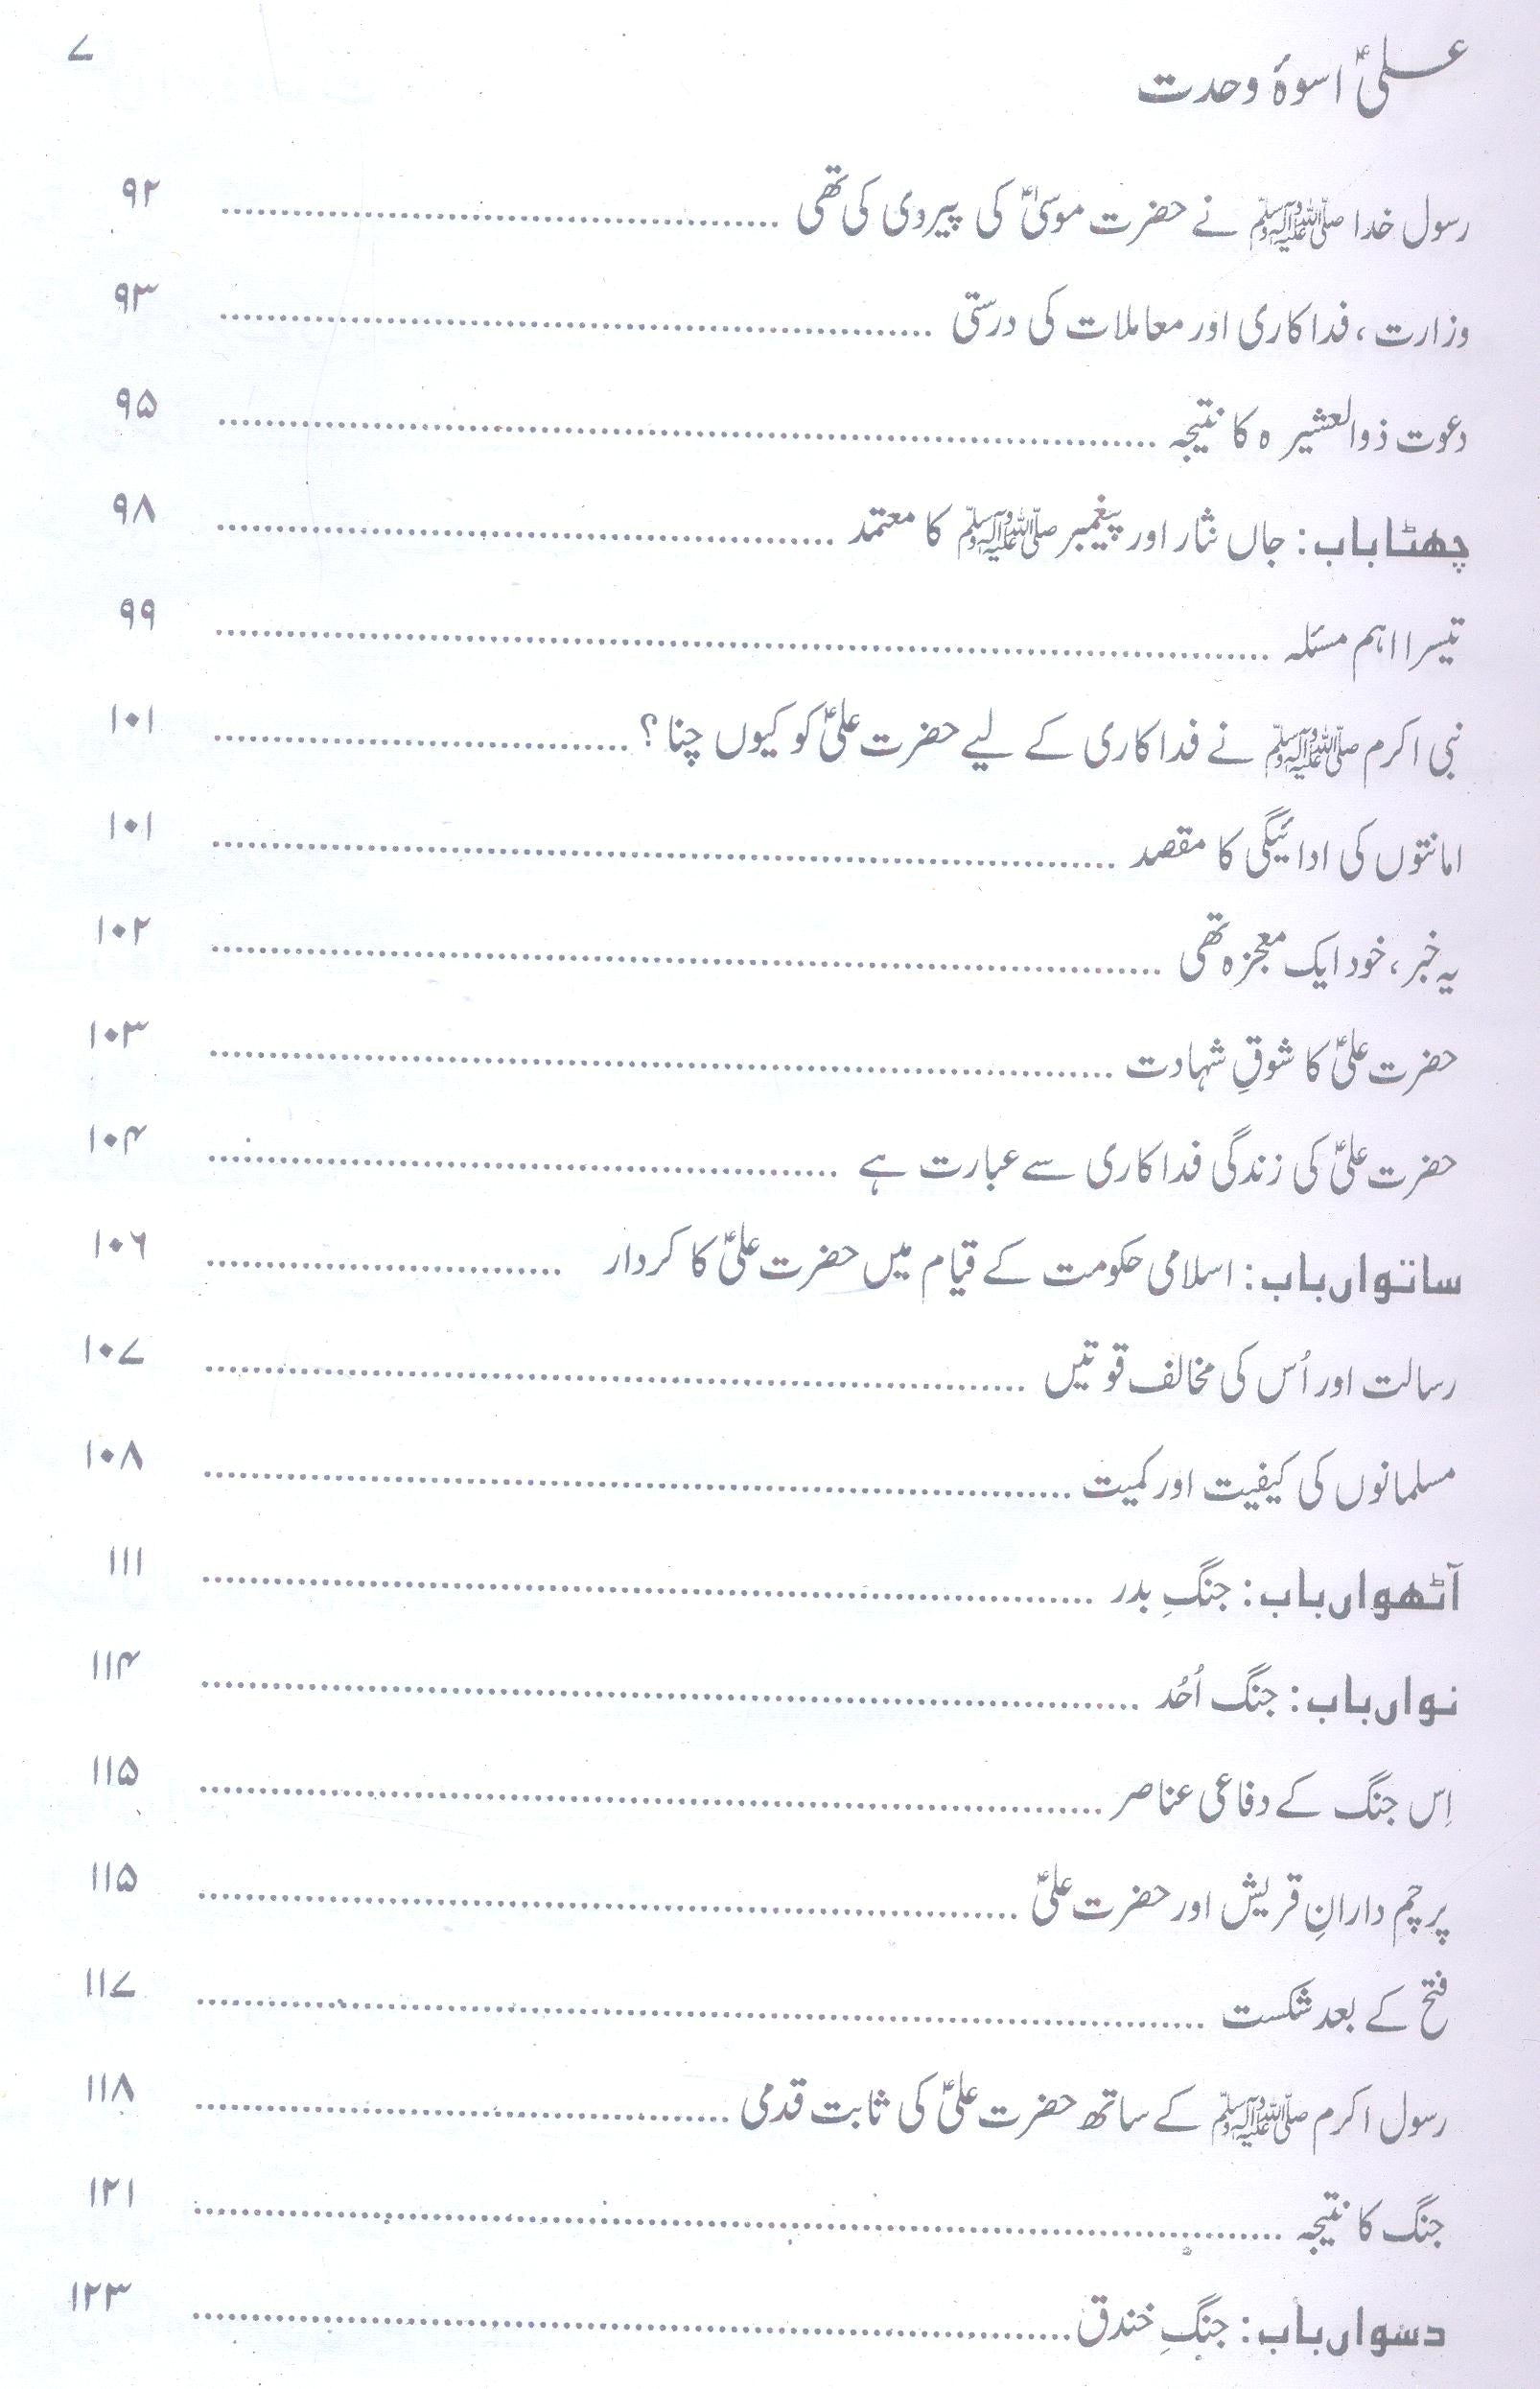 علیؑ اسوۂ وحدت ۷
رسول خدا ﷺ نے حضرت موسیٰؑ کی پیروی کی تھی ........ ۹۲
وزارت، فداکاری اور معاملات کی درستی ........ ۹۳
دعوت ذوالعشیرہ کا نتیجہ ........ ۹۵
چھٹا باب: جاں نثار اور پیغمبر ﷺ کا معتمد ........ ۹۸
تیسرا اہم مسئلہ ........ ۹۹
نبی اکرم ﷺ نے فداکاری کے لیے حضرت علیؑ کو کیوں چنا؟ ........ ۱۰۱
امانتوں کی ادائیگی کا مقصد ........ ۱۰۱
یہ خبر، خود ایک معجزہ تھی ........ ۱۰۲
حضرت علیؑ کا شوقِ شہادت ........ ۱۰۳
حضرت علیؑ کی زندگی فداکاری سے عبارت ہے ........ ۱۰۴
ساتواں باب: اسلامی حکومت کے قیام میں حضرت علیؑ کا کردار ........ ۱۰۶
رسالت اور اُس کی مخالف قوتیں ........ ۱۰۷
مسلمانوں کی کیفیت اور کمیت ........ ۱۰۸
آٹھواں باب: جنگِ بدر ........ ۱۱۱
نواں باب: جنگ اُحُد ........ ۱۱۴
اِس جنگ کے دفاعی عناصر ........ ۱۱۵
پرچم دارانِ قریش اور حضرت علیؑ ........ ۱۱۵
فتح کے بعد شکست ........ ۱۱۷
رسول اکرم ﷺ کے ساتھ حضرت علیؑ کی ثابت قدمی ........ ۱۱۸
جنگ کا نتیجہ ........ ۱۲۱
دسواں باب: جنگِ خندق ........ ۱۲۳